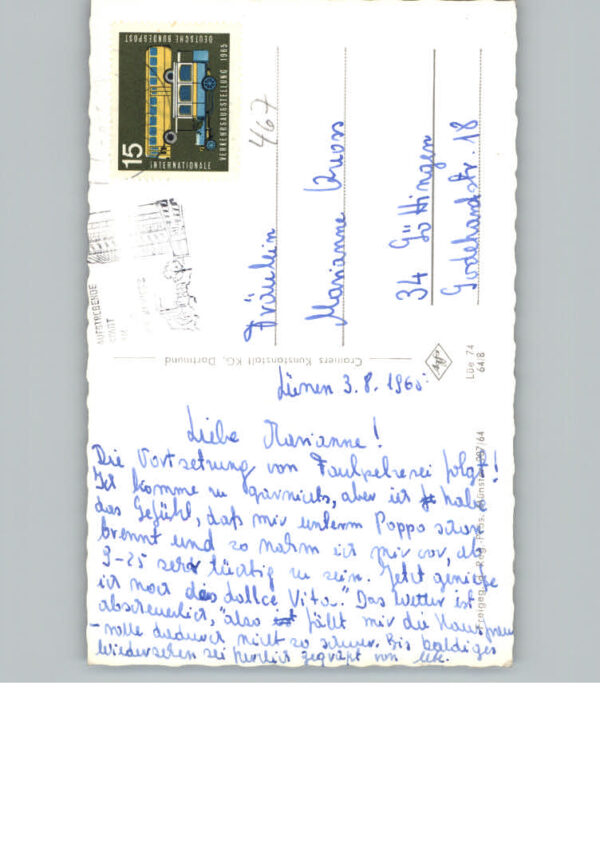 15
INTERNATIONALE
VERKEHRSAUSSTELLUNG 1965
DEUTSCHE BUNDESPOST
467
AUFSTREBENDE
STADT
Fräulein
Marianne
34 Göttingen
Godehardstr. 18
Cramers Kunstanstalt KG, Dortmund
Lüe 74
64/8
Lünen 3.8.1965
Liebe Marianne!
Die Vortsetzung von Faulpelzerei folgt!
Ich komme zu garnichts, aber ich habe
das Gefühl, daß mir unterm Poppo schon
brennt und so nahm ich mir vor, ab
9-25 sehr tüchtig zu sein. Jetzt genieße
ich noch das dollce Vita." Das Wetter ist
abscheulich, "also fällt mir die Hausfrauen
-rolle dadurch nicht so schwer. Bis baldiges
Wiedersehen sei herzlich gegrüßt von Ute.